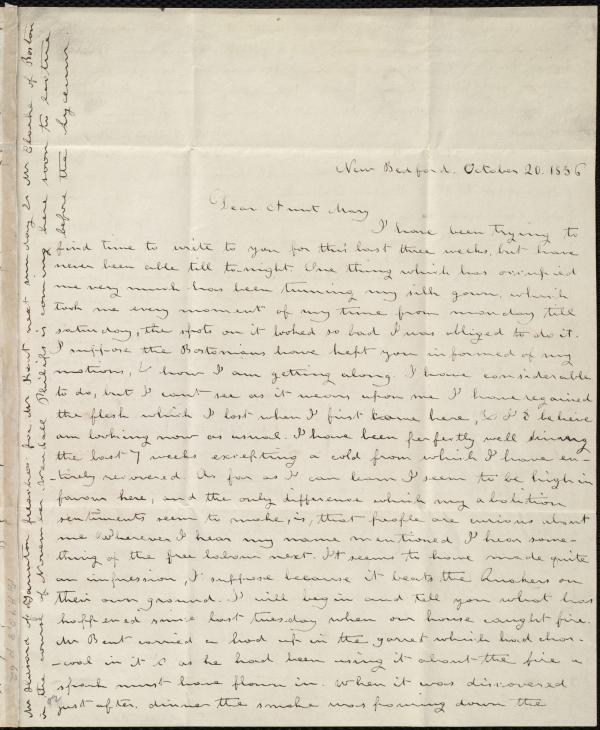 New Bedford. October 20. 1836
Dear Aunt Mary
I have been trying to
find time to write to you for this last three weeks, but have
never been able till to-night. One thing which has occupied
me very much has been turning my silk gown, which
took me every moment of my time from monday till
saturday, the spots on it looked so bad I was obliged to do it.
I suppose the Bostonians have kept you informed of my
motions, & how I am getting along. I have considerable
to do, but I cant see as it wears upon me I have regained
the flesh which I lost when I first came here, & I believe
am looking now as usual. I have been perfectly well during
the last 7 weeks excepting a cold from which I have en-
-tirely recovered. As far as I can learn I seem to be high in
favour here, and the only difference which my abolition
sentiments seem to make, is, that people are curious about
me Wherever I hear my name mentioned I hear some-
thing of the free labour next. It seems to have made quite
an impression, I suppose because it beats the Quakers on
their own ground. I will begin and tell you what has
happened since last tuesday when our house caught fire.
Mr Bent carried a hod up in the garret which had char-
-coal in it & as he had been using it about the fire a
spark must have flown in. When it was discovered
just after dinner the smoke was pouring down the
Mr of Taunton preaches for Mr Bent next sunday & Mr Clarke of Boston
is the course of November. Wendell Phillips is coming here soon to lecture
before the lyceum.